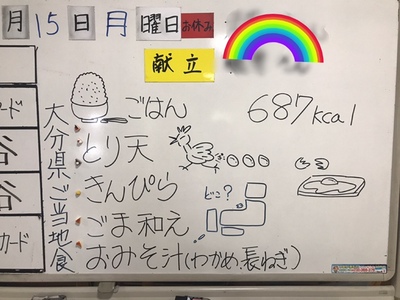 月15日月曜日お休み
献立
大分県ご当地食
ごはん
687kcal
とり天
きんぴら
どこ?
ごま和え
おみそ汁(わかめ、長ねぎ)
ード
谷
谷
カード